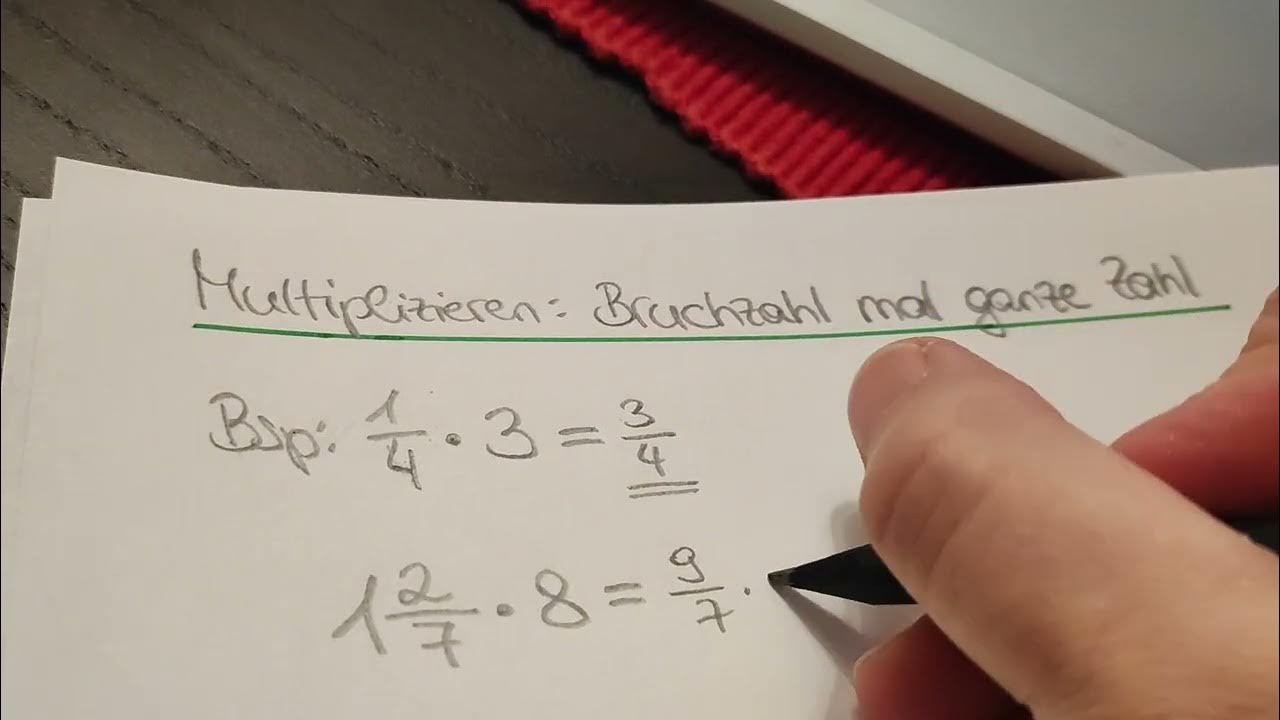 Multiplizieren: Bruchzahl mal ganze Zahl
Bsp: 1/4 · 3 = 3/4
1 2/7 · 8 = 9/7 ·